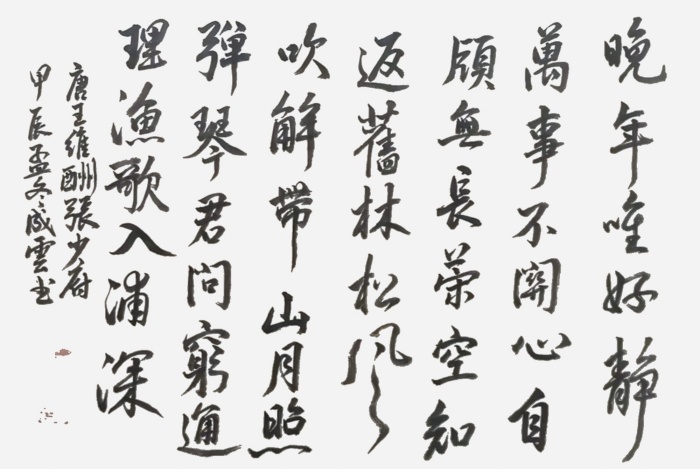 晚年唯好靜
萬事不關心自
顧無長策空知
返舊林松風
吹解帶山月照
彈琴君問窮通
理漁歌入浦深
唐王維酬張少府
甲辰孟冬成雲书